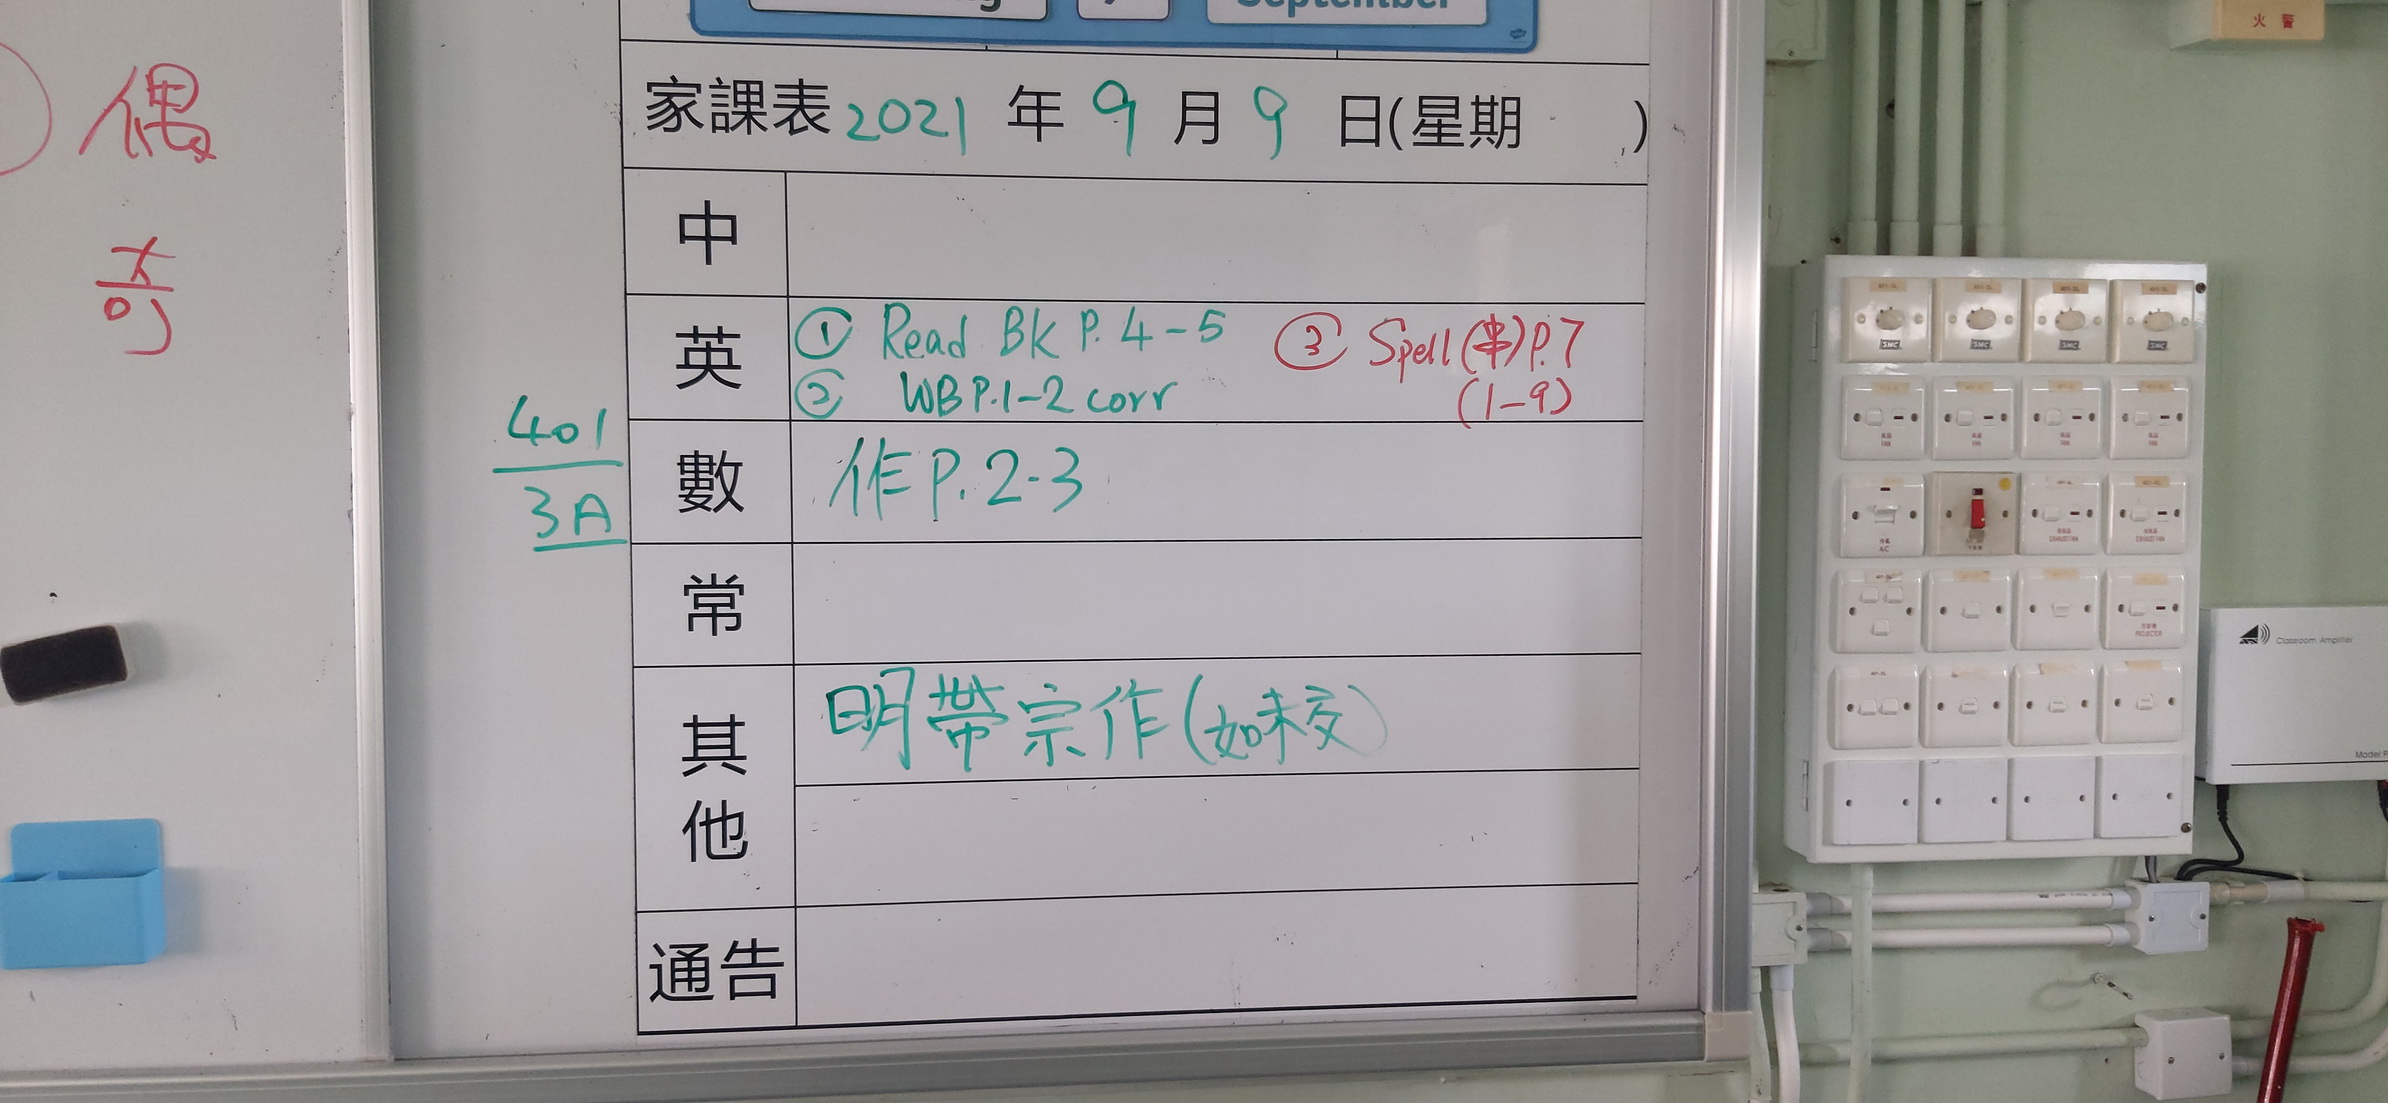 September
偶
奇
家課表 2021 年 9 月 9 日(星期 )
中
英
① Read BK P. 4-5
② WB P.1-2 corr
③ Spell (串) P.7
(1-9)
401
3A
數
作 P. 2-3
常
其他
明帶宗作(如未交)
通告
火警
SMC
SMC
SMC
SMC
FAN
FAN
FAN
FAN
A/C
EXHAUST FAN
EXHAUST FAN
PROJECTOR
Classroom Amplifier